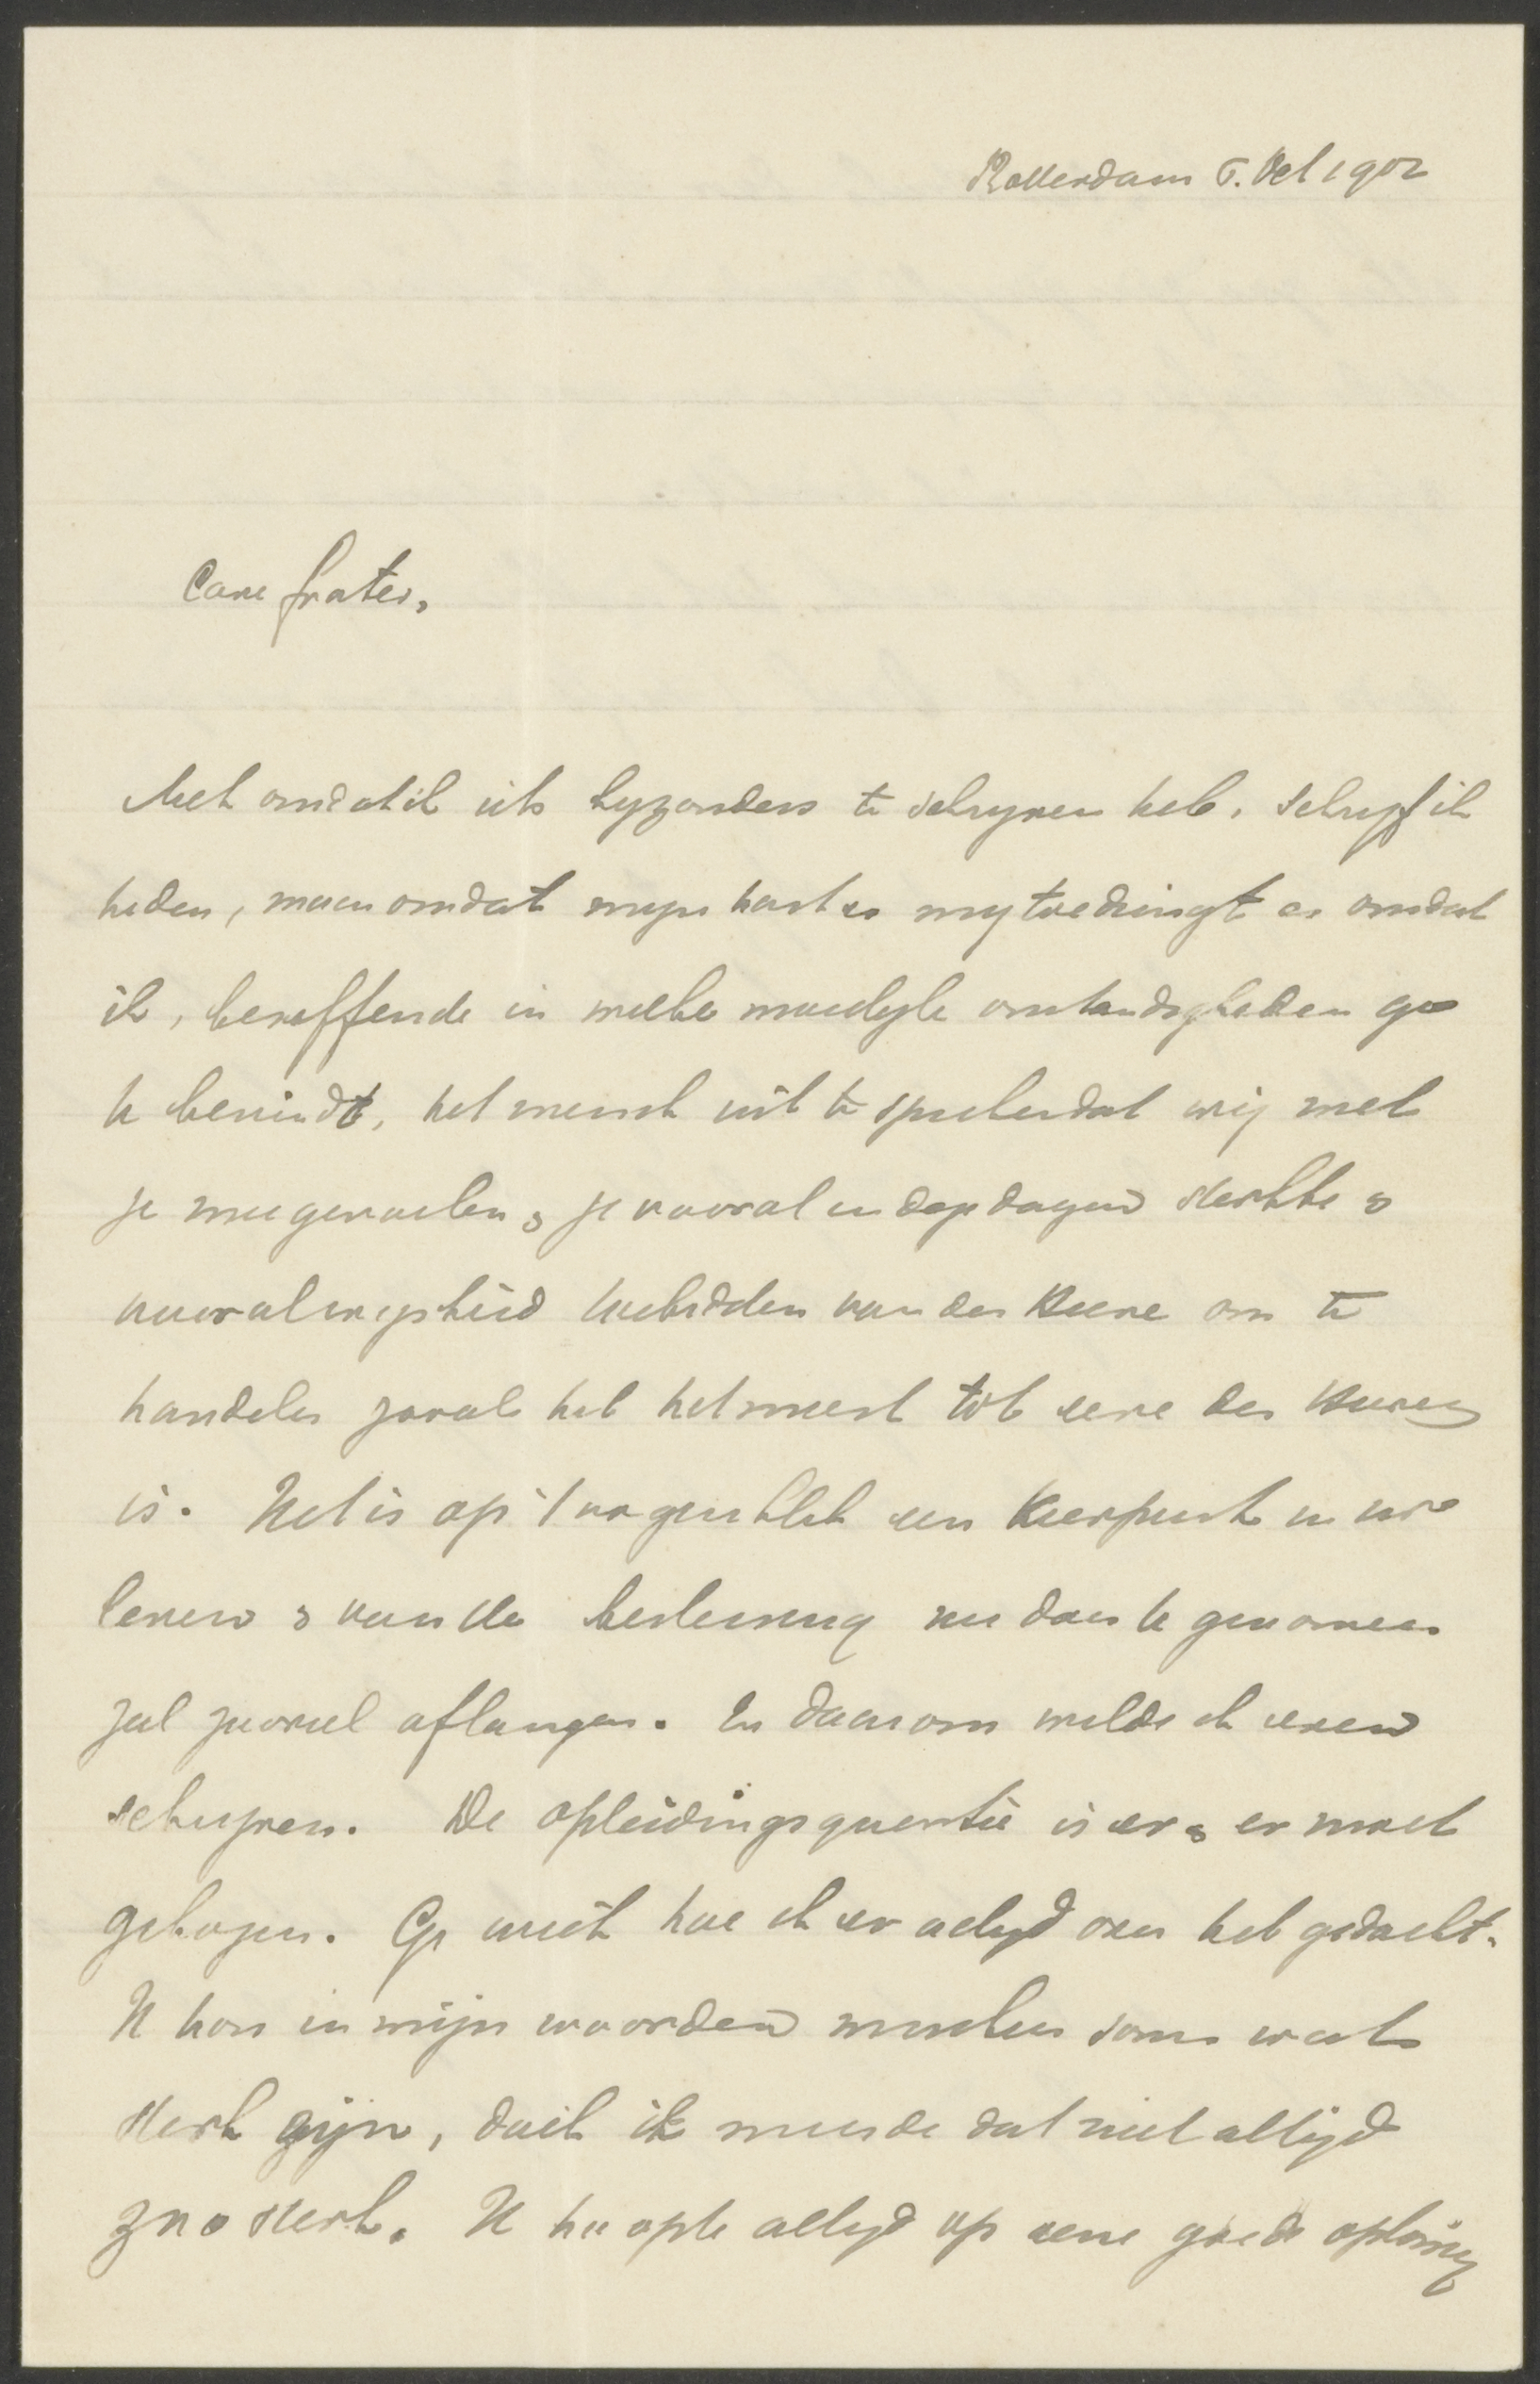 Rotterdam 6. Oct 1902
Care frater,
Niet omdat ik iets byzonders te schryven heb, schryf ik
heden, maar omdat myn hart er my toe dringt en omdat
ik, beseffende in welke moeilyke omstandigheden ge
U bevindt, het wensch uit te spreken dat wij met
je meegevoelen & je vooral in deze dagen sterkte &
vooral wysheid toebidden van den Heere om te
handelen zooals het het meest tot eere des Heeren
is. Het is op 't oogenblik een keerpunt in ons
leven & van de beslissing nu daar te genomen
zal zooveel afhangen. En daarom wilde ik even
schryven. De opleidingsquestie is er & er moet
gekozen. Ge weet hoe ik er altyd over heb gedacht.
Ik kon in mijn woorden misschien soms wat
sterk zijn, doch ik meende dat niet altijd
zoo sterk. Ik hoopte altyd op eene goede oplossing